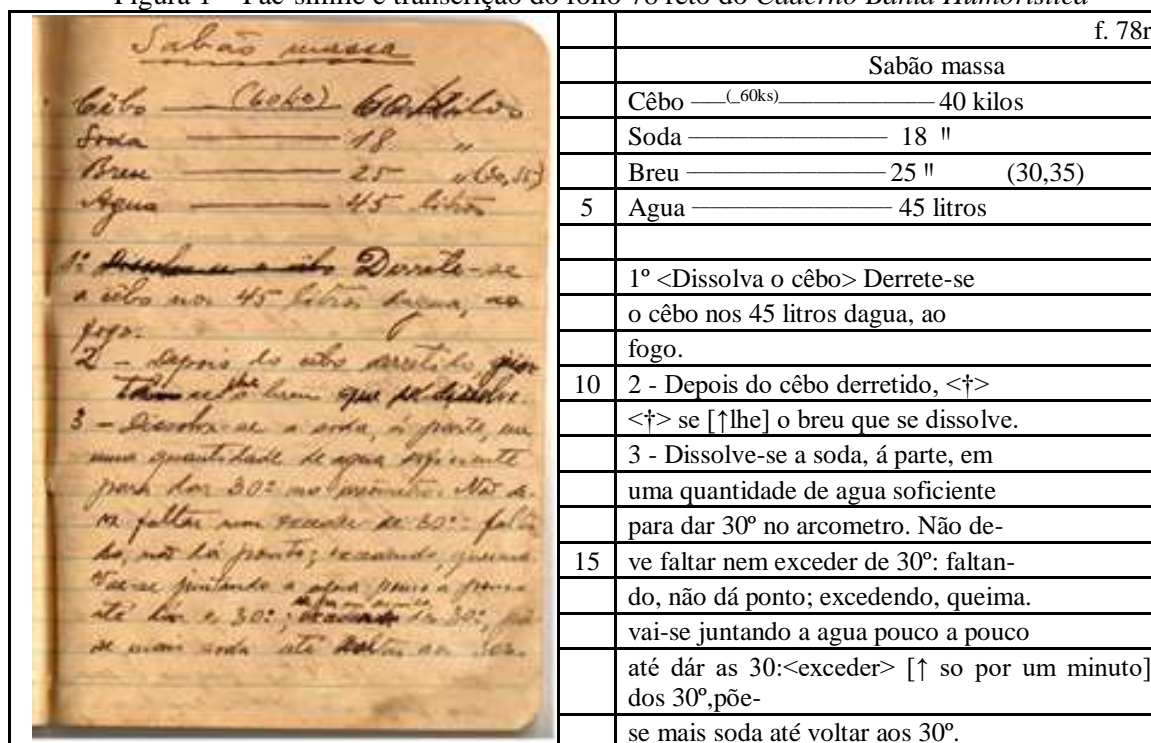 Figura 1 – Fac-símile e transcrição do fólio 78 reto do Caderno Bahia Humorística
Sabão massa
Cêbo (60ks) 60 kilos
Soda 18 "
Breu 25 " (30,35)
Agua 45 litros
1º Derrete-se
o cêbo nos 45 litros dagua, ao
fogo.
2 - Depois do cêbo derretido
se lhe o breu que se dissolve.
3 - Dissolve-se a soda, á parte, em
uma quantidade de agua soficiente
para dar 30º no Não de-
ve faltar nem exceder de 30º: faltan-
do, não dá ponto; excedendo, queima.
Vae-se juntando a agua pouco a pouco
até dar os 30º; dos 30º, põe-
se mais soda até voltar aos 30º.
f. 78r
Sabão massa
Cêbo —(_60ks)—— 40 kilos
Soda —— 18 "
Breu —— 25 " (30,35)
5 Agua —— 45 litros
1º <Dissolva o cêbo> Derrete-se
o cêbo nos 45 litros dagua, ao
fogo.
10 2 - Depois do cêbo derretido, <†>
<†> se [↑lhe] o breu que se dissolve.
3 - Dissolve-se a soda, á parte, em
uma quantidade de agua soficiente
para dar 30º no arcometro. Não de-
15 ve faltar nem exceder de 30º: faltan-
do, não dá ponto; excedendo, queima.
vai-se juntando a agua pouco a pouco
até dár as 30:<exceder> [↑ so por um minuto]
dos 30º,põe-
se mais soda até voltar aos 30º.